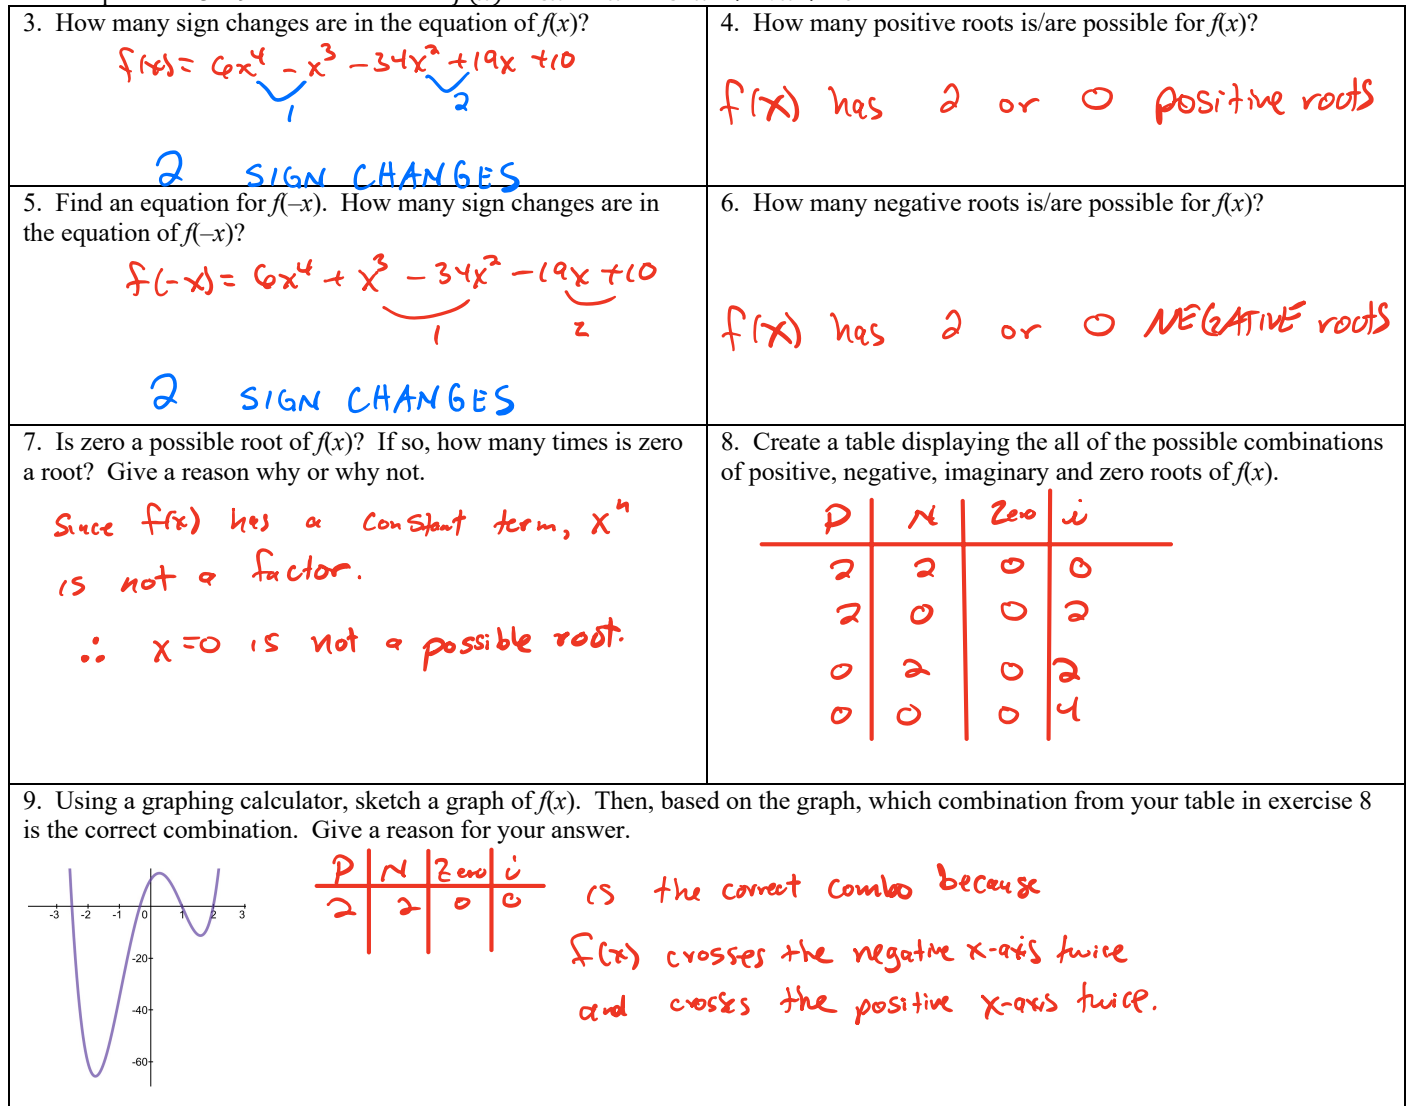 3. How many sign changes are in the equation of f(x)?
f(x) = 6x⁴ - x³ - 34x² + 19x + 10
1 2
2 SIGN CHANGES
4. How many positive roots is/are possible for f(x)?
f(x) has 2 or 0 positive roots
5. Find an equation for f(–x). How many sign changes are in
the equation of f(–x)?
f(-x) = 6x⁴ + x³ - 34x² - 19x + 10
1 2
2 SIGN CHANGES
6. How many negative roots is/are possible for f(x)?
f(x) has 2 or 0 NEGATIVE roots
7. Is zero a possible root of f(x)? If so, how many times is zero
a root? Give a reason why or why not.
Since f(x) has a constant term, xⁿ
is not a factor.
∴ x=0 is not a possible root.
8. Create a table displaying the all of the possible combinations
of positive, negative, imaginary and zero roots of f(x).
P N Zero i
2 2 0 0
2 0 0 2
0 2 0 2
0 0 0 4
9. Using a graphing calculator, sketch a graph of f(x). Then, based on the graph, which combination from your table in exercise 8
is the correct combination. Give a reason for your answer.
-3 -2 -1 0 1 2 3
-20
-40
-60
P N Zero i
2 2 0 0
is the correct combo because
f(x) crosses the negative x-axis twice
and crosses the positive x-axis twice.